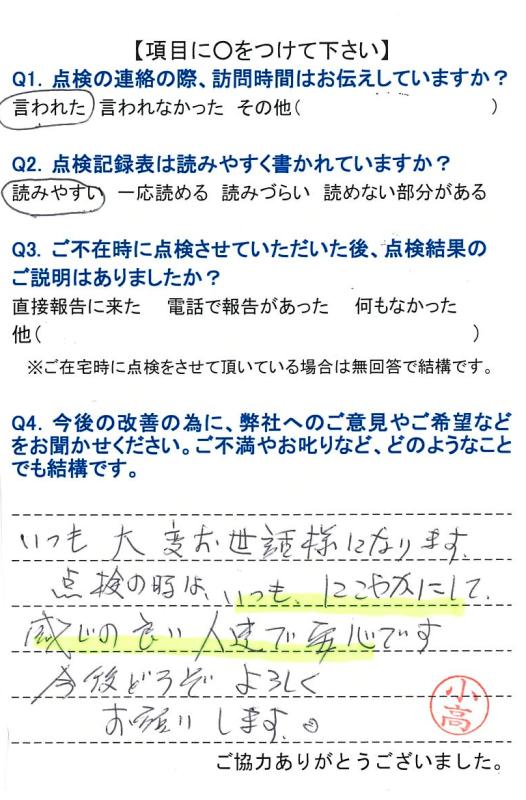 【項目に〇をつけて下さい】
Q1. 点検の連絡の際、訪問時間はお伝えしていますか？
言われた 言われなかった その他( )
Q2. 点検記録表は読みやすく書かれていますか？
読みやすい 一応読める 読みづらい 読めない部分がある
Q3. ご不在時に点検させていただいた後、点検結果の
ご説明はありましたか？
直接報告に来た 電話で報告があった 何もなかった
他( )
※ご在宅時に点検をさせて頂いている場合は無回答で結構です。
Q4. 今後の改善の為に、弊社へのご意見やご希望など
をお聞かせください。ご不満やお叱りなど、どのようなこと
でも結構です。
いつも 大変お世話様になります.
点検の時は、いつも、にこやかにして、
感じの良い人達で安心です
今後どうぞ よろしく
お願いします。
小高
ご協力ありがとうございました。